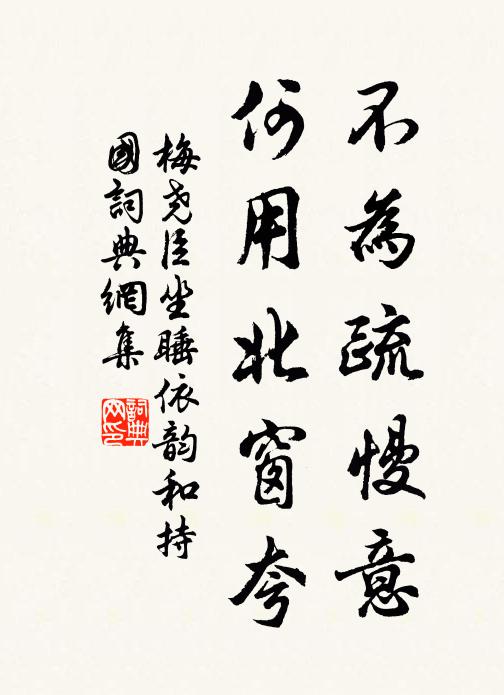 不為疏慢意
何用北窗夸
梅堯臣坐睡依韵和持
國詞典網集
詞典
网印